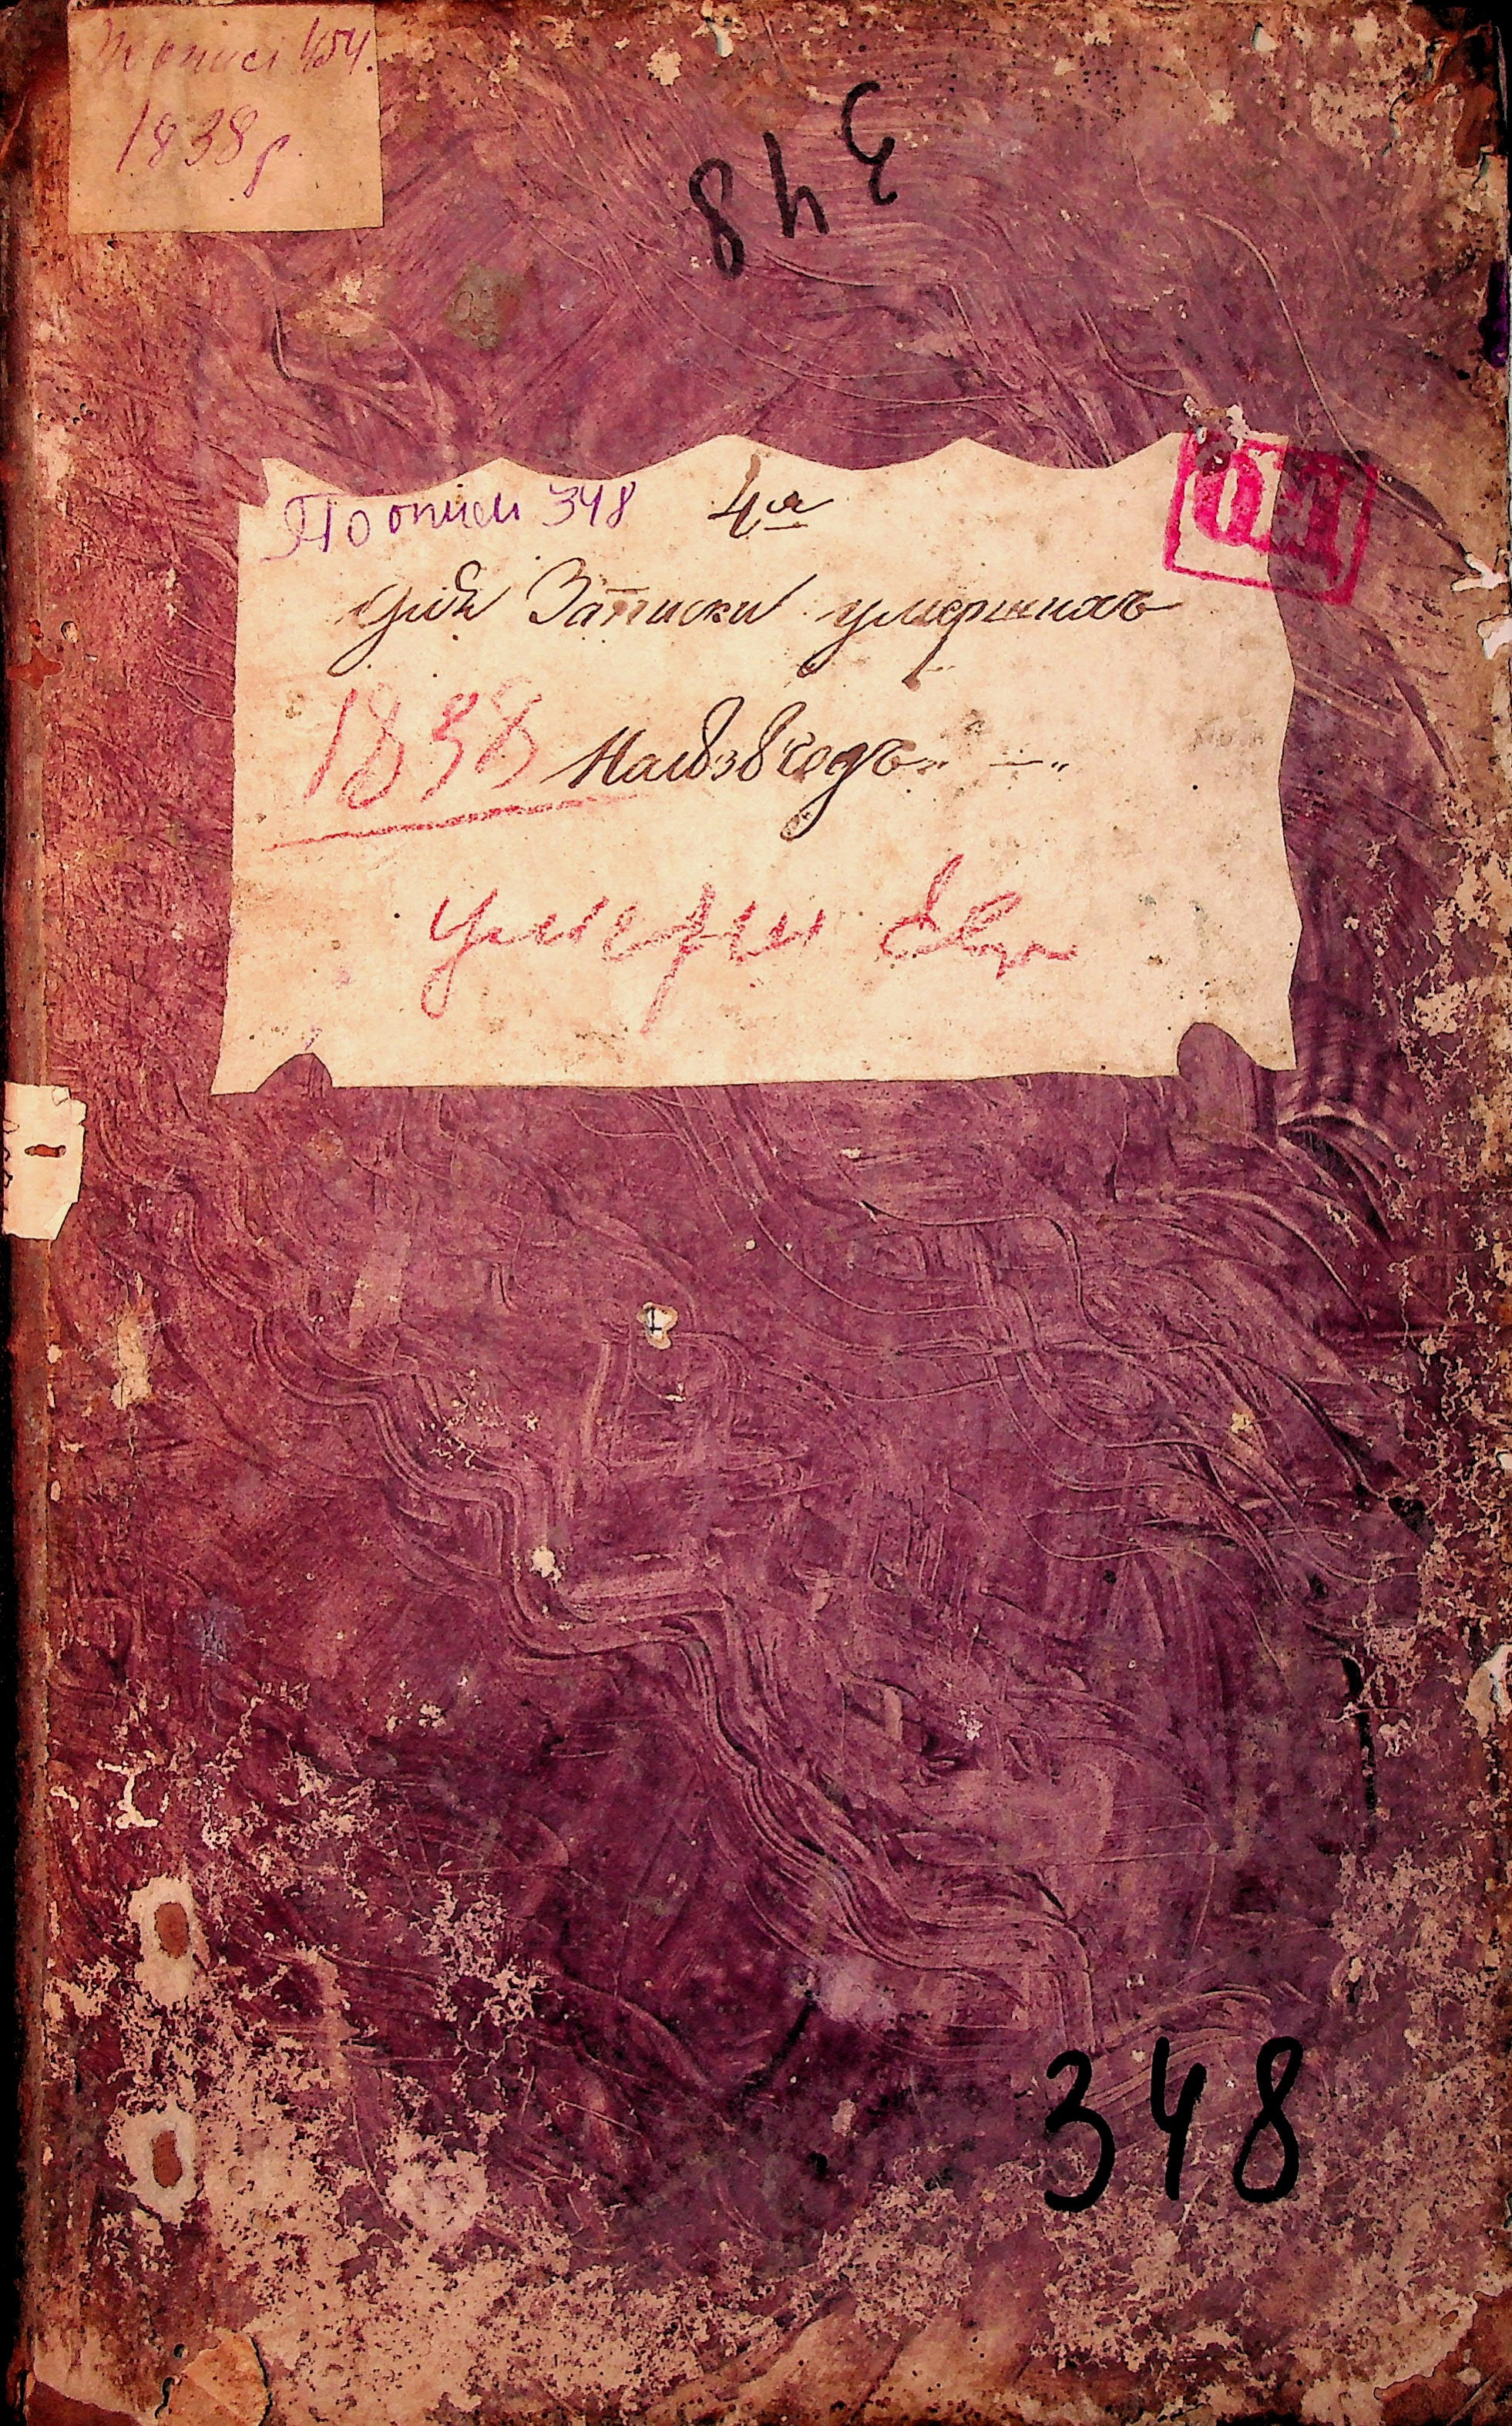 описи 454.
1838 г.
348
По описи 348
4я
Для Записки умершихъ
1838 На 1838 годъ
умерш евр
348